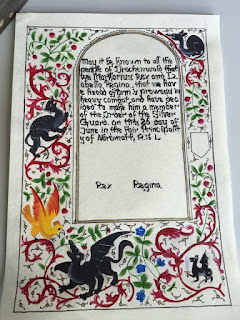 May it be known to all the
people of Drachenwald that
we Margarius Rex and Iz
abella Regina, that we hav
e heard of arn's prowess in
heavy combat and have dec
ided to make him a member
of the Order of the Silver
Guard. On this 26 day of
June in the fair Principalit
y of Nordmark, A.S. L
Rex Regina